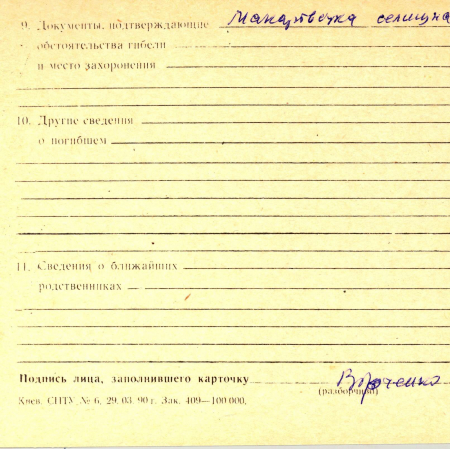 9. Документы, подтверждающие Макарівська селищна
обстоятельства гибели
и место захоронения
10. Другие сведения
о погибшем
11. Сведения о ближайших
родственниках
Подпись лица, заполнившего карточку
(разборчиво)
Киев. СПТУ. № 6. 29. 03. 90 г. Зак. 409—100 000.